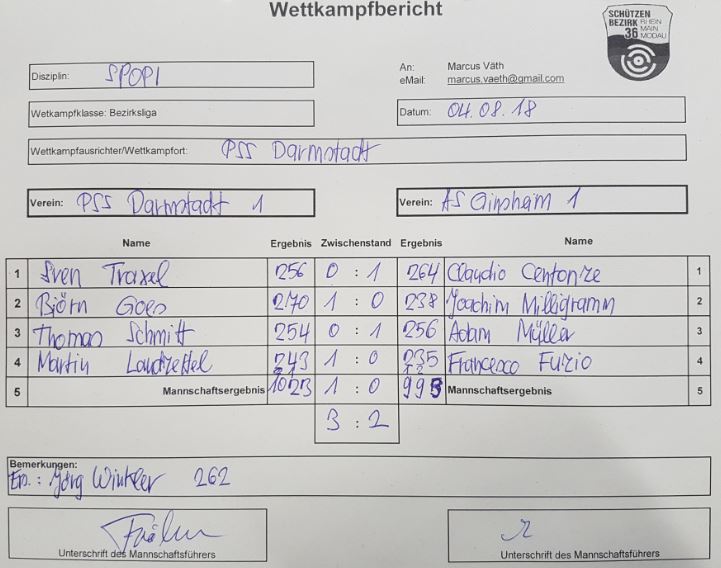 Wettkampfbericht
SCHÜTZEN
BEZIRK RHEIN
36 MAIN
MODAU
Disziplin: SPOPI
An: Marcus Väth
eMail: marcus.vaeth@gmail.com
Wetkampfklasse: Bezirksliga
Datum: 04.08.18
Wettkampfausrichter/Wettkampfort: PSS Darmstadt
Verein: PSS Darmstadt 1
Verein: AS Ginsheim 1
Name Ergebnis Zwischenstand Ergebnis Name
1 Sven Traxel 256 0 : 1 264 Claudio Centonze 1
2 Björn Goes 270 1 : 0 238 Joachim Milligramm 2
3 Thomas Schmitt 254 0 : 1 256 Adam Müller 3
4 Martin Landzettel 243 1 : 0 235 Francesco Furio 4
5 Mannschaftsergebnis 1023 1 : 0 993 Mannschaftsergebnis 5
3 : 2
Bemerkungen:
Ers.: Jörg Winkler 262
Unterschrift des Mannschaftsführers
Unterschrift des Mannschaftsführers